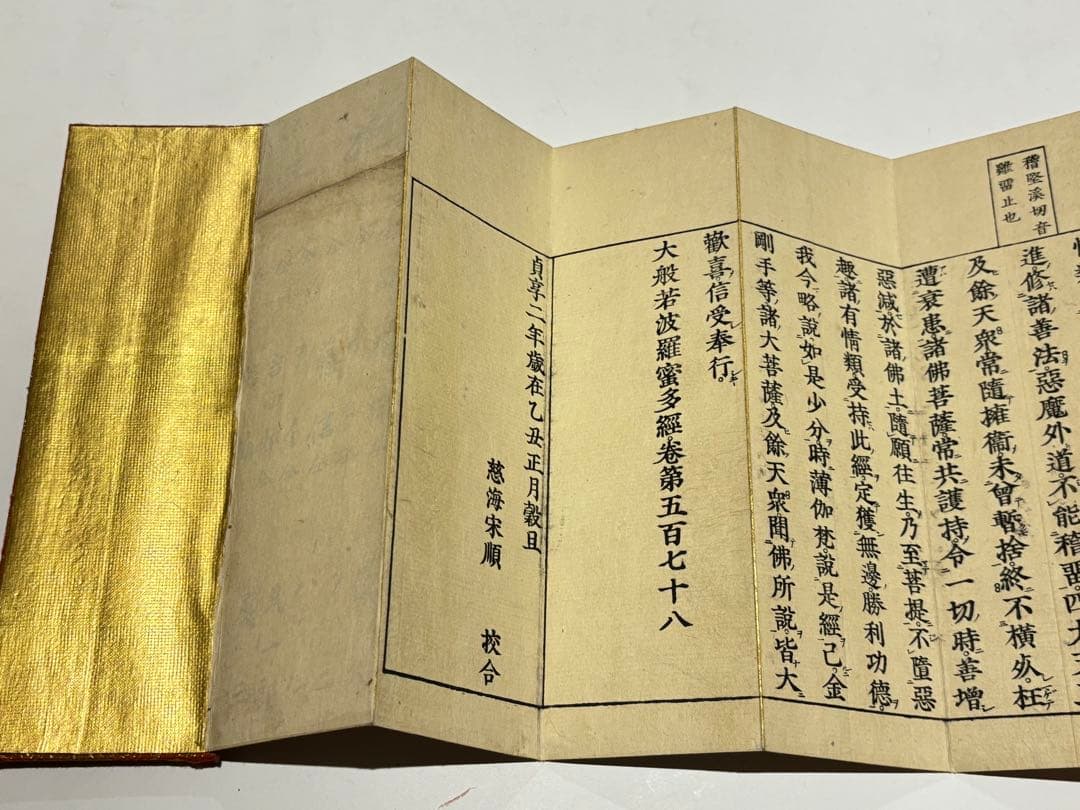 稽堅溪切音
雞留止也
進修諸善法惡魔外道不能稽留四大天
及餘天衆常隨擁衞未曾暫捨終不橫死枉
遭衰患諸佛菩薩常共護持令一切時善增
惡減於諸佛土隨願往生乃至菩提不墮惡
趣諸有情類受持此經定獲無邊勝利功德
我今略說如是少分時薄伽梵說是經已金
剛手等諸大菩薩及餘天衆聞佛所說皆大
歡喜信受奉行
大般若波羅蜜多經卷第五百七十八
貞享二年歲在乙丑正月穀旦
慈海宋順 校合